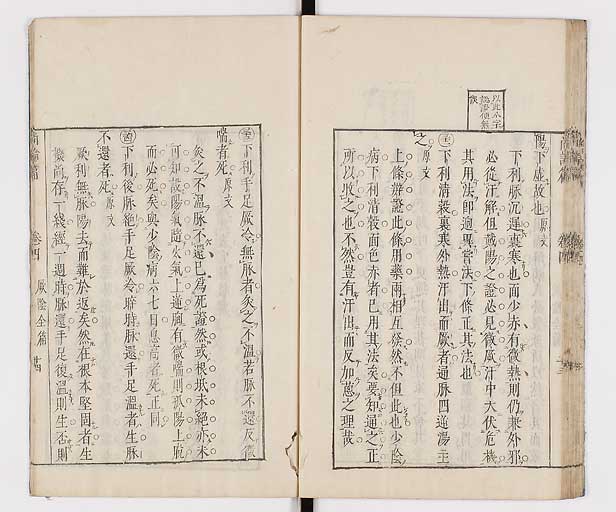 以此六字
陽下虛故也原文
下利脈沉遲裏寒也而少赤有微熱則仍兼外邪
必從汗解但戴陽之證必見微厥汗中大伏危機
其用法即迥異常法下條正其法也
下利清穀裏寒外熱汗出而厥者通脈四逆湯主
之原文
上條辨證此條用藥兩相互發然不但此也少陰
病下利清穀面色赤者已用其法矣要知通之正
所以收之也不然豈有汗出而反加蔥之理哉
下利手足厥冷無脈者灸之不溫若脈不還反微
喘者死原文
灸之不溫脈不還已為死證然或根柢未絕亦未
可知設陽氣隨火氣上逆胸有微喘則孤陽上脫
而必死矣與少陰病六七日息高者死正同
下利後脈絕手足厥冷晬時脈還手足溫者生脈
不還者死原文
厥利無脈陽去而難於返矣然在根本堅固者生
機尚存一線經一週時脈還手足復溫則生否則
卷四 厥陰全篇